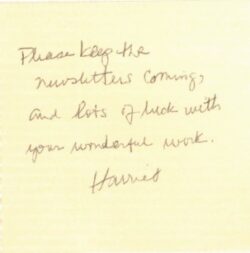 Please keep the
newsletters coming,
and lots of luck with
your wonderful work.
Harriet